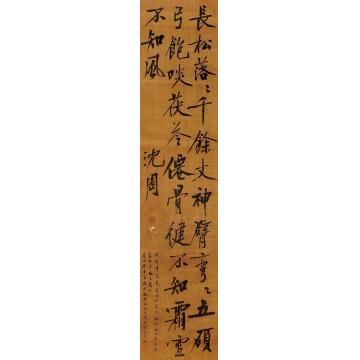 長松落〻千餘丈神臂彎〻五碩
弓飽啖茯苓僊骨健不知霜雪
不知風
沈周